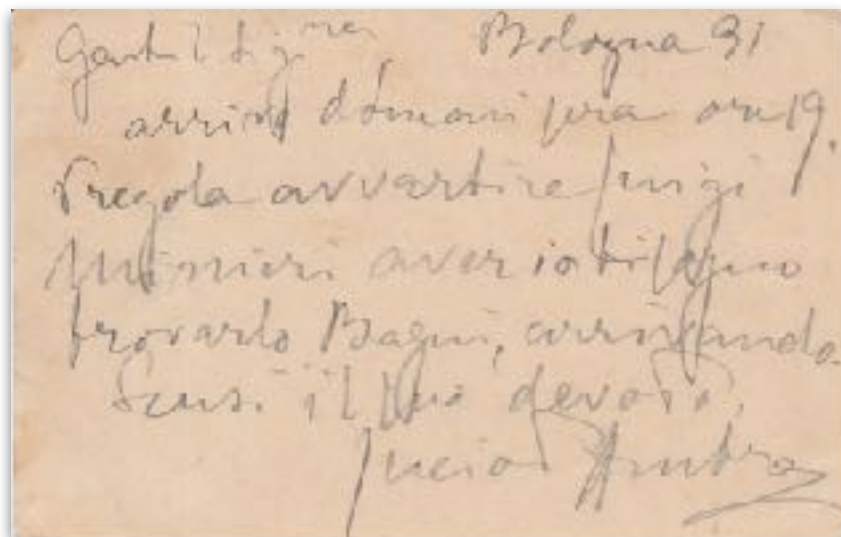 Gentil Sig.ra Bologna 31
arrivo domani sera ore 19.
Pregola avvertire Luigi
Minieri aver io bisogno
trovarlo Bagni, arrivando.
Scusi il suo devoto,
Lucio d'Ambra